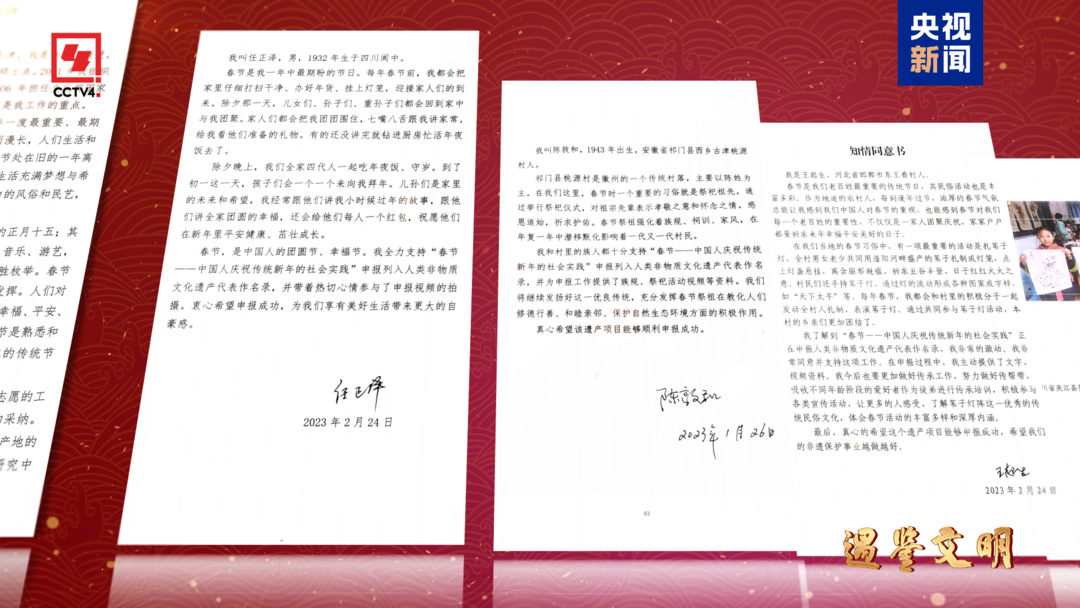 CCTV4
央视
新闻
是我工作的重点。
一度最重要、最期
而漫长，人们生活和
节处在旧的一年离
生活充满梦想与希
的风俗和民艺，
的正月十五；其
音乐、游艺，
胜枚举。春节
发挥。人们对
幸福、平安、
节是熟悉和
的传统节
志愿的工
的采纳。
产地的
研究中
我叫任正泽，男，1932 年生于四川阆中。
春节是我一年中最期盼的节日。每年春节前，我都会把
家里仔细打扫干净、办好年货、挂上灯笼，迎接家人们的到
来。除夕那一天，儿女们、孙子们、重孙子们都会回到家中
与我团聚。家人们都会把我团团围住，七嘴八舌跟我讲家常，
给我看他们准备的礼物。有的还没讲完就钻进厨房忙活年夜
饭去了。
除夕晚上，我们全家四代人一起吃年夜饭、守岁。到了
初一这一天，孩子们会一个一个来向我拜年。儿孙们是家里
的未来和希望，我经常跟他们讲我小时候过年的故事，跟他
们讲全家团圆的幸福，还会给他们每人一个红包，祝愿他们
在新年里平安健康、茁壮成长。
春节，是中国人的团圆节、幸福节。我全力支持“春节
——中国人庆祝传统新年的社会实践”申报列入人类非物质
文化遗产代表作名录，并带着热切心情参与了申报视频的拍
摄。衷心希望申报成功，为我们享有美好生活带来更大的自
豪感。
任正泽
2023 年 2 月 24 日
我叫陈敦和，1943 年出生，安徽省祁门县西乡古津桃源
村人。
祁门县桃源村是徽州的一个传统村落，主要以陈姓为
主。在我们这里，春节时一个重要的习俗就是祭祀祖先，通
过举行祭祀仪式，对祖宗先辈表示孝敬之意和怀念之情，感
恩追始，祈求护佑。春节祭祖强化着族规、祠训、家风，在
年复一年中潜移默化影响着一代又一代村民。
我和村里的族人都十分支持“春节——中国人庆祝传统
新年的社会实践”申报列入人类非物质文化遗产代表作名
录，并为申报工作提供了族规、祭祀活动视频等资料。我们
将继续发扬好这一优良传统，充分发挥春节祭祖在教化人们
修德行善、和睦亲邻、保护自然生态环境方面的积极作用。
真心希望该遗产项目能够顺利申报成功。
陈敦和
2023年1月26日
63
知情同意书
我是王起生，河北省邯郸市东王看村人。
春节是我们老百姓最重要的传统节日，其民俗活动也是丰
富多彩。作为地道的农村人，每到逢年过节，浓厚的春节气氛
总能让我感到我们中国人对春节的重视，也能感到春节对我们
每一个老百姓的重要性。不仅仅是一家人团聚庆祝，家家户户
都要祈求来年幸福平安美好的日子。
在我们当地的春节习俗中，有一项最重要的活动是扎苇子
灯，全村男女老少共同用滏阳河畔盛产的苇子扎制成灯笼，点
上灯盏悬挂，寓合驱邪避瘟，祈求五谷丰登、日子红红火火之
意。村民们还手持苇子灯，通过灯的流动形成各种图案或字样，
如“天下太平”等。每年春节，我都会和村里的积极分子一起
发动全村人扎制、表演苇子灯。通过共同参与苇子灯活动，本
村的乡亲们更加团结了。
我了解到“春节——中国人庆祝传统新年的社会实践”正
在申报人类非物质文化遗产代表作名录，我非常的激动。我非
常同意并支持这项工作。在申报过程中，我主动提供了文字、
视频资料。我今后也要更加做好传承工作，努力做好传帮带，
吸收不同年龄阶段的爱好者作为徒弟进行传承培训，积极参与
各类宣传活动，让更多的人感受、了解苇子灯阵这一优秀的传
统民俗文化，体会春节活动的丰富多样和深厚内涵。
最后，真心的希望这个遗产项目能够申报成功，希望我们
的非遗保护事业越做越好。
王起生
2023 年 2 月 24 日
川省夹江县
遇鉴文明